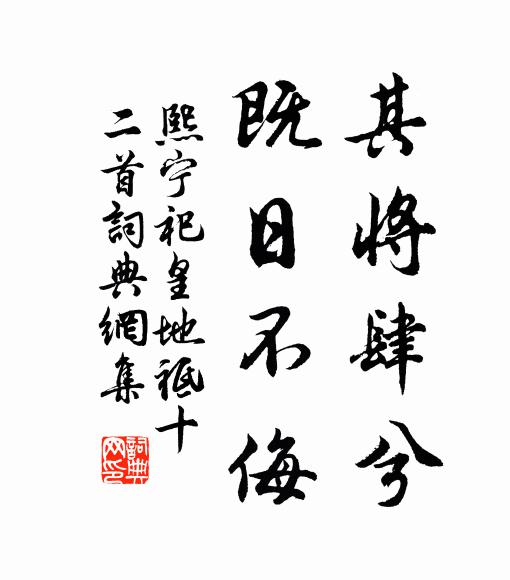 其將肆兮
既日不侮
熙宁祀皇地祗十
二首詞典網集
詞典
网印